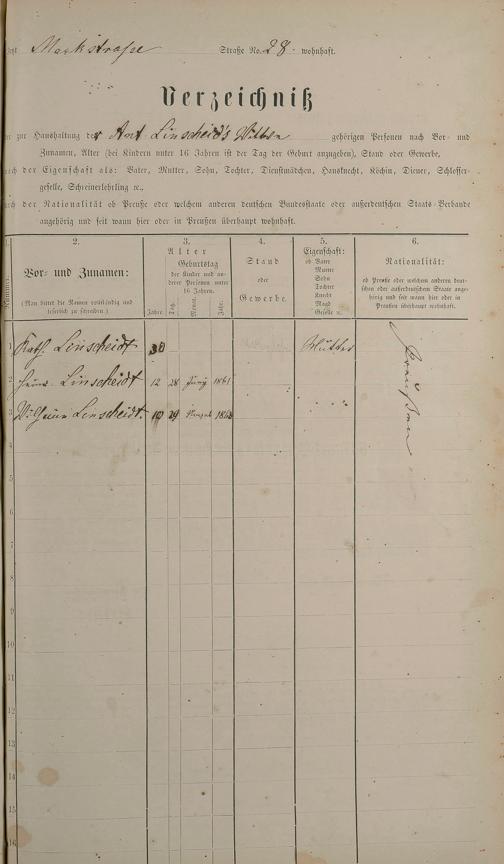 Marktstraße Straße No. 28 wohnhaft.
Verzeichniß
zur Haushaltung der Ant. Linscheid's Wittwe gehörigen Personen nach Vor- und
Zunamen, Alter (bei Kindern unter 16 Jahren ist der Tag der Geburt anzugeben), Stand oder Gewerbe,
der Eigenschaft als: Vater, Mutter, Sohn, Tochter, Dienstmädchen, Hausknecht, Köchin, Diener, Schlosser-
geselle, Schreinerlehrling ꝛc.,
der Nationalität ob Preuße oder welchem anderen deutschen Bundesstaate oder außerdeutschen Staats-Verbande
angehörig und seit wann hier oder in Preußen überhaupt wohnhaft.
1. 2. 3. 4. 5. 6.
Nummer.
Vor- und Zunamen:
(Man bittet die Namen vollständig und
leserlich zu schreiben.)
Alter
Geburtstag
der Kinder und an-
derer Personen unter
16 Jahren.
Jahre. Tag. Monat. Jahr.
Stand
oder
Gewerbe.
Eigenschaft:
ob Vater
Mutter
Sohn
Tochter
Knecht
Magd
Geselle ꝛc.
Nationalität:
ob Preuße oder welchem anderen deut-
schen oder außerdeutschen Staate ange-
hörig und seit wann hier oder in
Preußen überhaupt wohnhaft.
1 Kath. Linscheidt 30 Mutter
2 Heinr. Linscheidt 12 28 Juny 1861
3 Wilhelm Linscheidt. 10 29 1863
Preußen
4
5
6
7
8
9
10
11
12
13
14
15
16